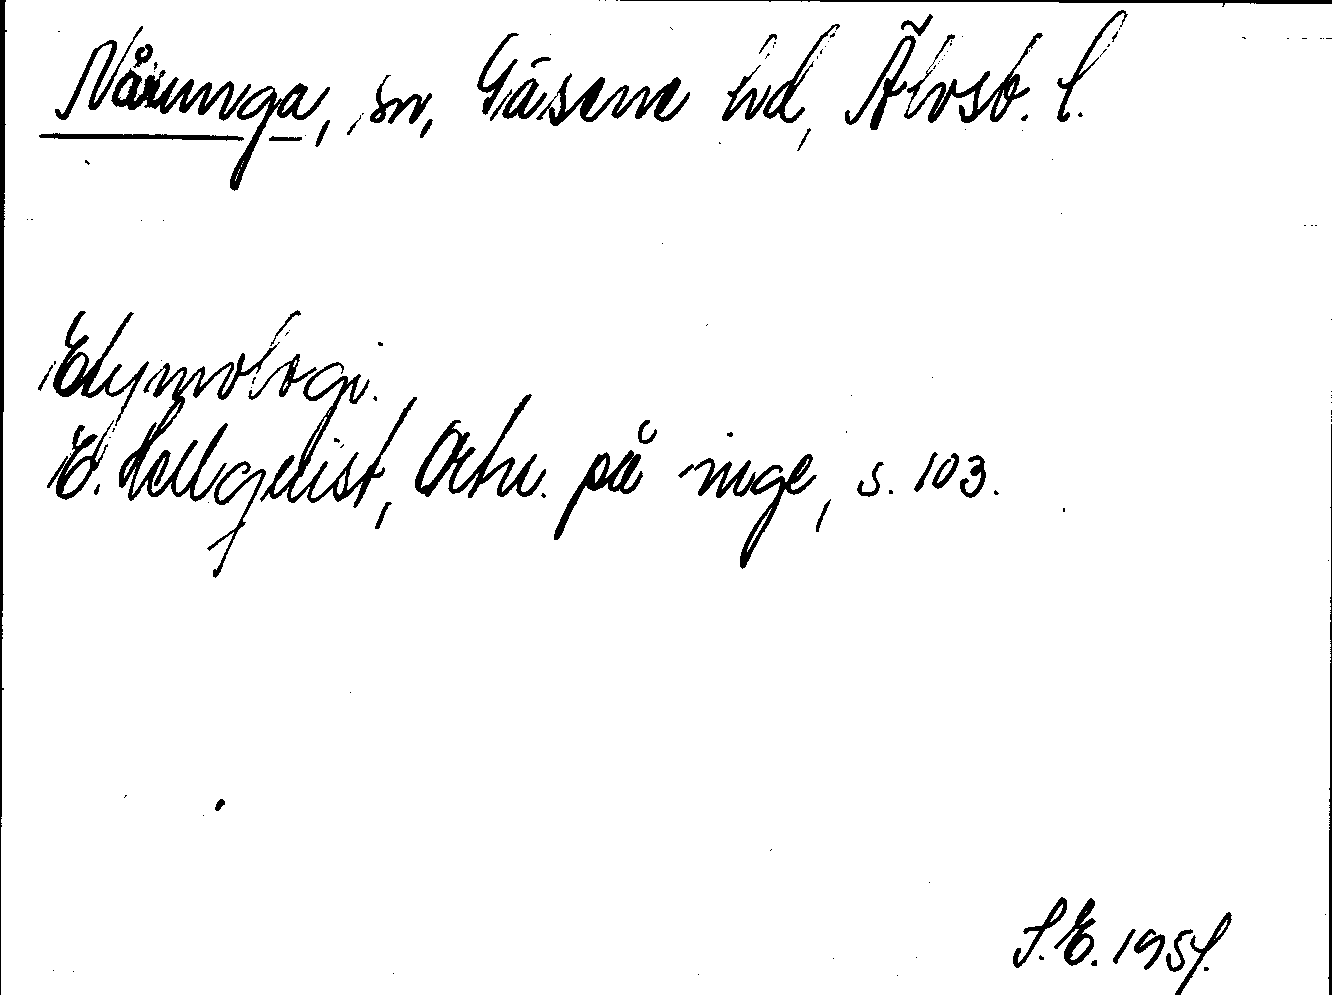 Nårunga, sn, Gäsene hd, Älvsb. l.
Etymologi.
E. Hellquist, Ortn. på inge, s. 103.
S.E. 1951.